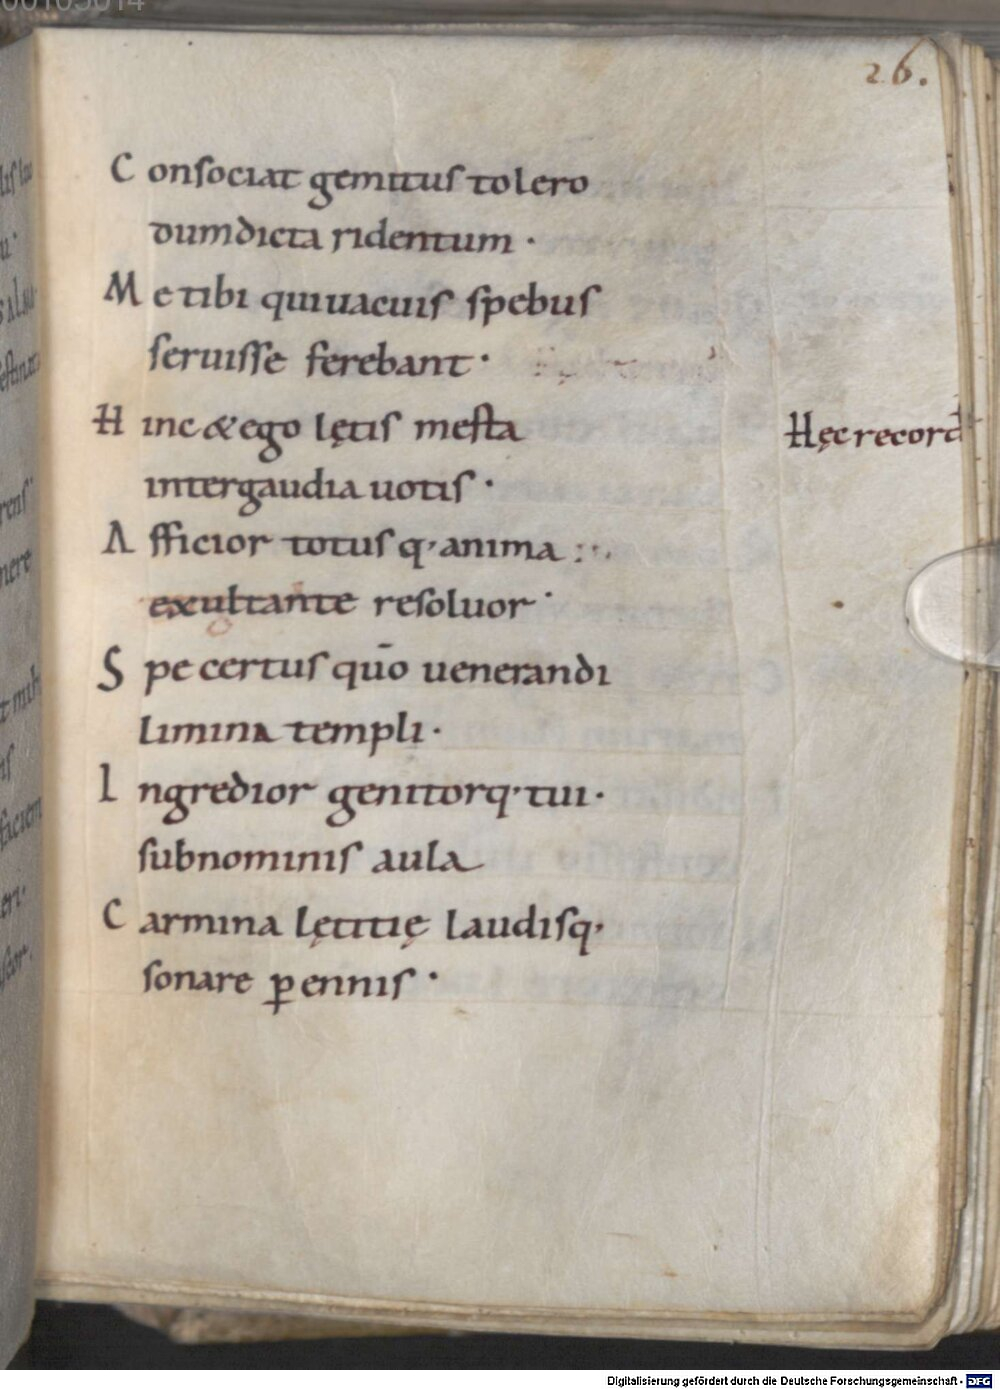 26.
Consociat gemitus tolero
dumdicta ridentum ·
Me tibi quiuacuis spebus
seruisse ferebant ·
Hinc & ego lętis mesta
Hęc record
intergaudia uotis ·
Afficior totus q· anima
exultante resoluor ·
Spe certus quō uenerandi
limina templi ·
Ingredior genitorq· tui ·
subnominis aula
Carmina lętitię laudisq·
sonare ꝑennis ·
Digitalisierung gefördert durch die Deutsche Forschungsgemeinschaft - DFG